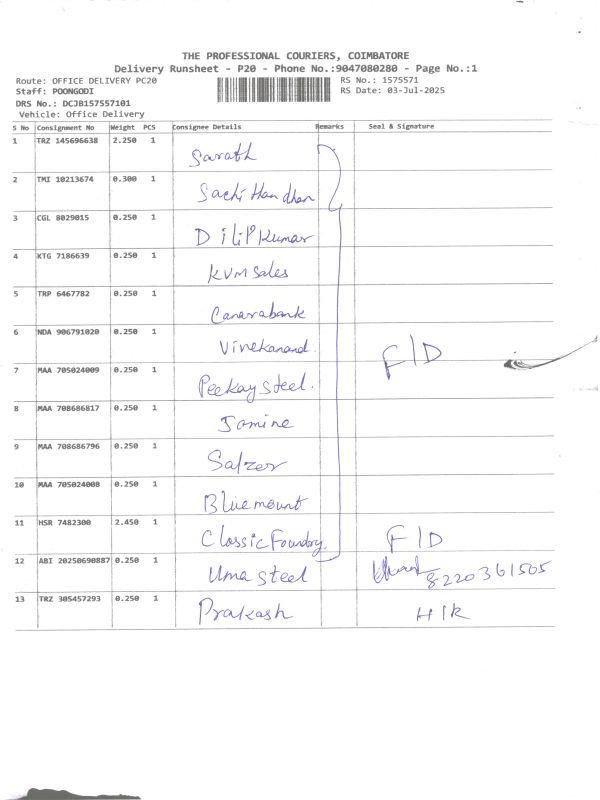 THE PROFESSIONAL COURIERS, COIMBATORE
Delivery Runsheet - P20 - Phone No.:9047080280 - Page No.:1
Route: OFFICE DELIVERY PC20 RS No.: 1575571
Staff: POONGODI RS Date: 03-Jul-2025
DRS No.: DCJB157557101
Vehicle: Office Delivery
S No Consignment No Weight PCS Consignee Details Remarks Seal & Signature
1 TRZ 145696638 2.250 1 Sarath
2 TMI 10213674 0.300 1 Sachi Han dhan
3 CGL 8029015 0.250 1 Dilip Kumar
4 KTG 7186639 0.250 1 KVM Sales
5 TRP 6467782 0.250 1 Canarabank
6 NDA 906791020 0.250 1 Vivekanand. F/D
7 MAA 705024009 0.250 1 Peekay steel.
8 MAA 708686817 0.250 1 Jamine
9 MAA 708686796 0.250 1 Salzer
10 MAA 705024008 0.250 1 Bluemount
11 HSR 7482300 2.450 1 Classic Foundry. F/D
12 ABI 20250690887 0.250 1 Uma steel 8220361505
13 TRZ 305457293 0.250 1 Prakash H/R